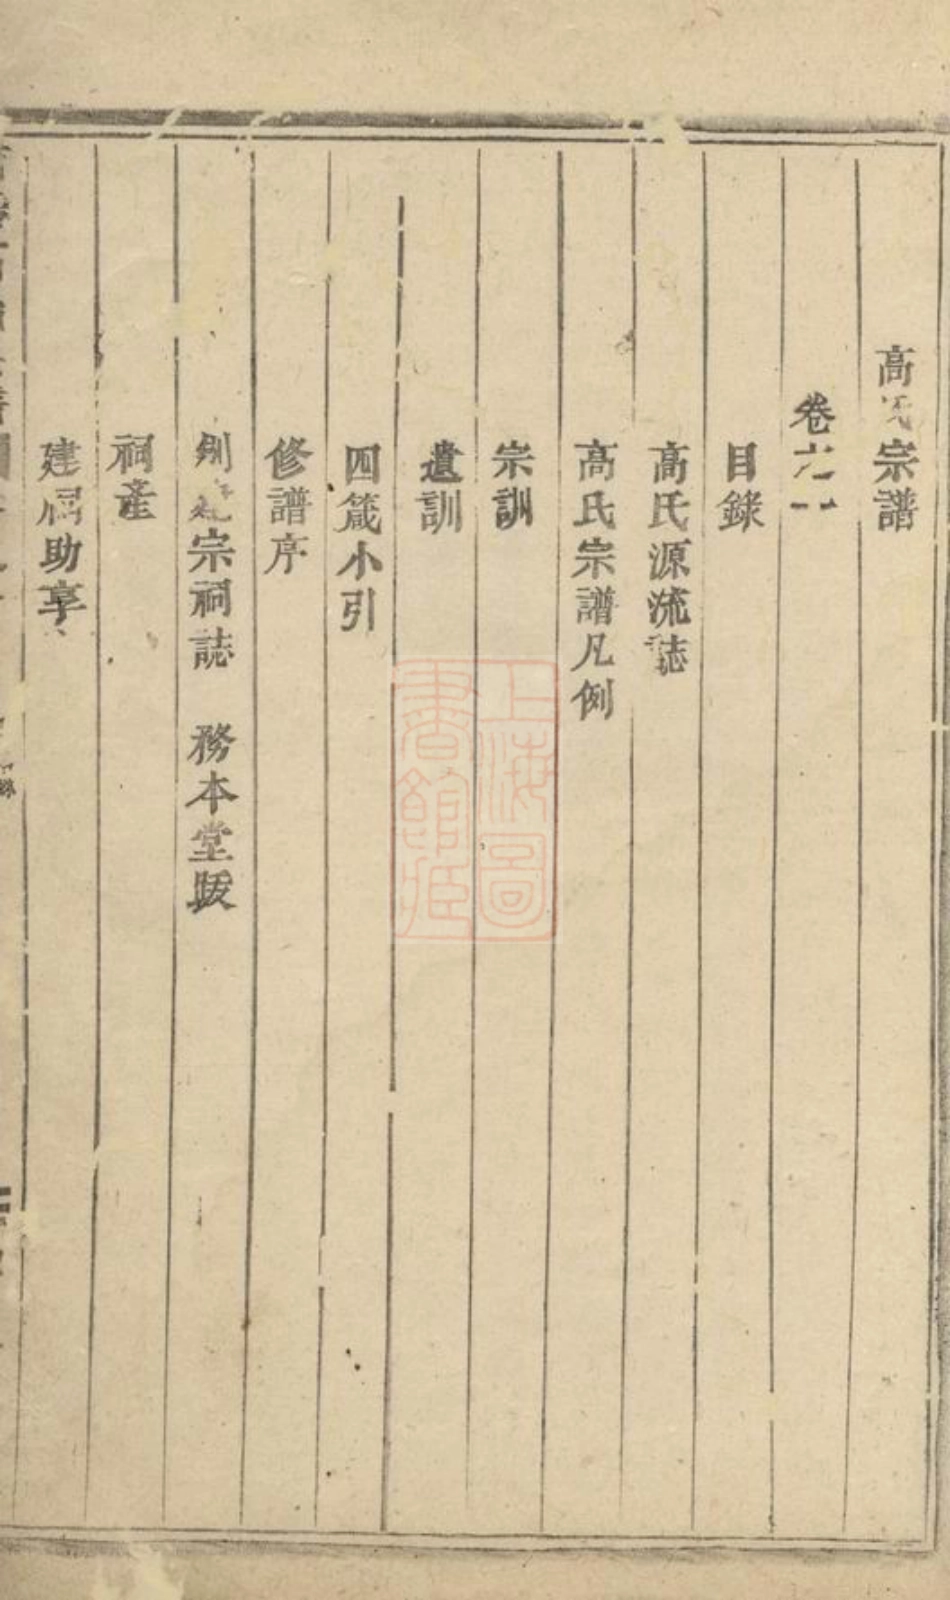 高氏宗譜
卷之一
目錄
高氏源流誌
高氏宗譜凡例
宗訓
遺訓
四箴小引
修譜序
創建宗祠誌 務本堂跋
祠產
建 助享
上海圖書館藏